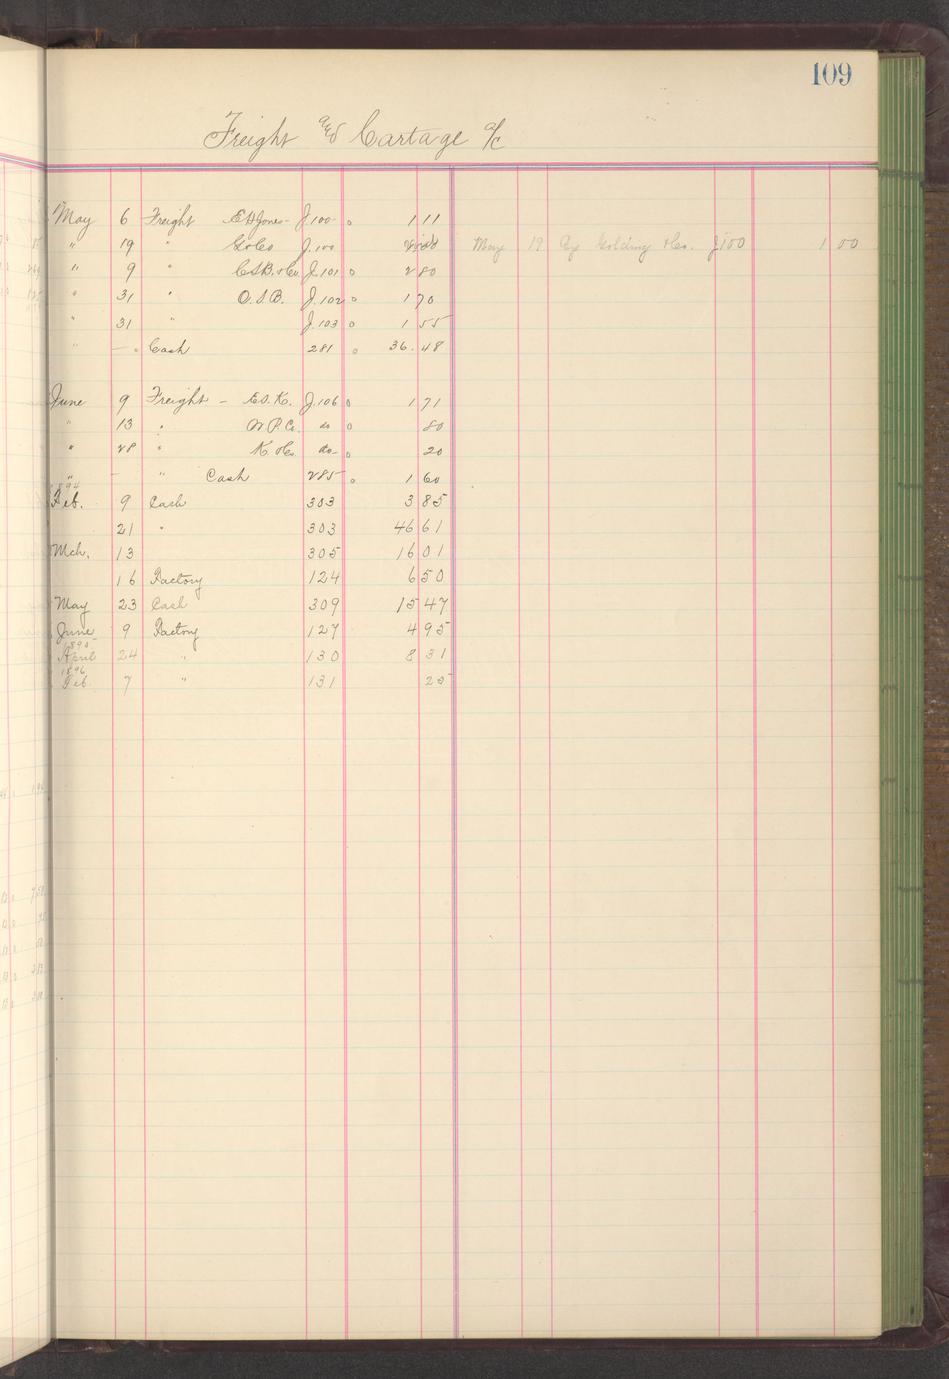 109
Freight and Cartage a/c
May 6 Freight E.H. Jones - J. 100 o 1 11
" 19 " G & Co J. 100 May 19 By Golding & Co. J 100 1 00
" 9 " C.S.B. & Co. J. 101 o 2 80
" 31 " O.S.B. J. 102 o 1 70
" 31 " J. 103 o 1 55
" — Cash 281 o 36.48
June 9 Freight - E.S.K. J. 106 o 1 71
" 13 " W.P. Co. do o 80
" 28 " K. & Co do o 20
" — " Cash 285 o 1 60
1894
Feb. 9 Cash 303 3 85
21 " 303 46 61
Mch. 13 305 16 01
16 Factory 124 6 50
May 23 Cash 309 15 47
June 9 Factory 127 4 95
1895
April 24 " 130 8 31
1896
Feb. 7 " 131 25